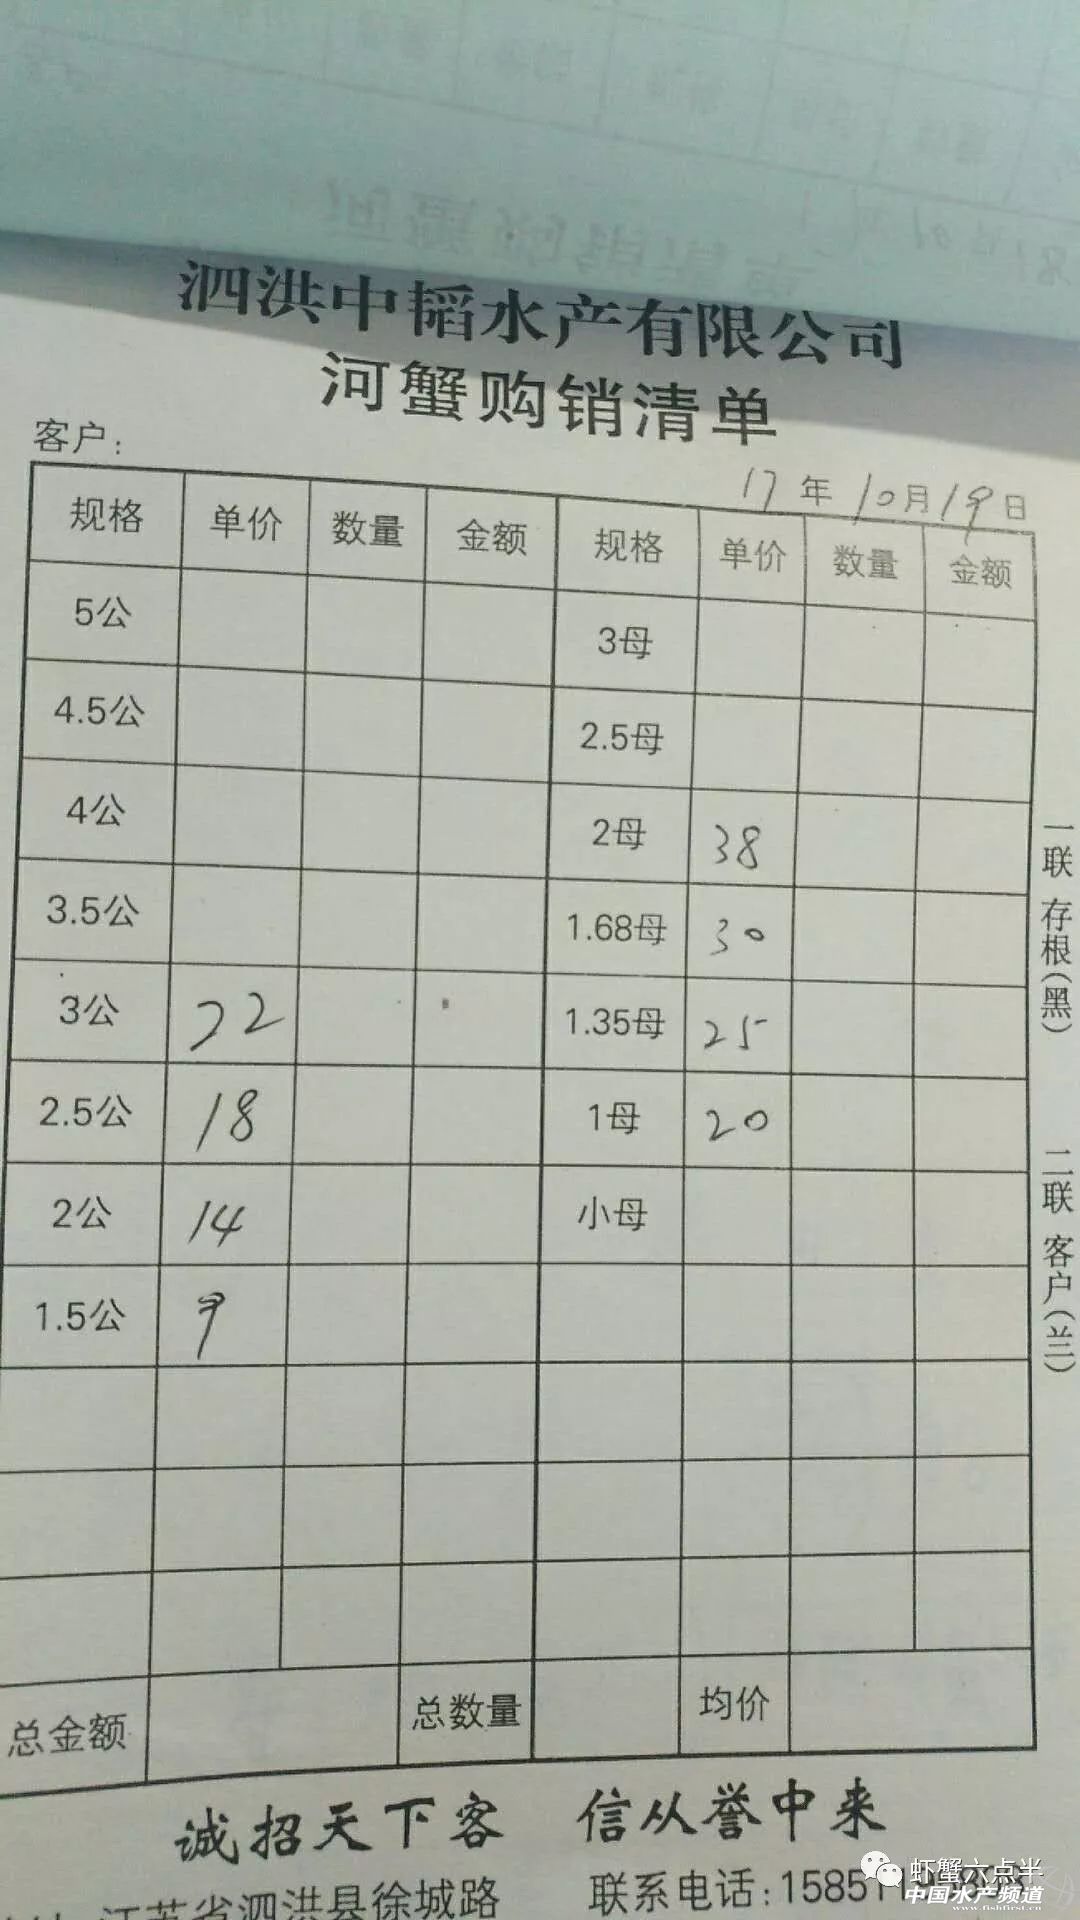 泗洪中韬水产有限公司
河蟹购销清单
客户：
17年10月19日
规格 单价 数量 金额 规格 单价 数量 金额
5公 3母
4.5公 2.5母
4公 2母 38
3.5公 1.68母 30
3公 22 1.35母 25
2.5公 18 1母 20
2公 14 小母
1.5公 9
总金额 总数量 均价
一联 存根(黑) 二联 客户(兰)
诚招天下客 信从誉中来
江苏省泗洪县徐城路 联系电话:15851
虾蟹六点半
中国水产频道
www.fishfirst.cn